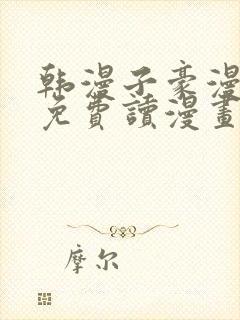 韩漫子豪漫
免費讀漫畫
摩尔